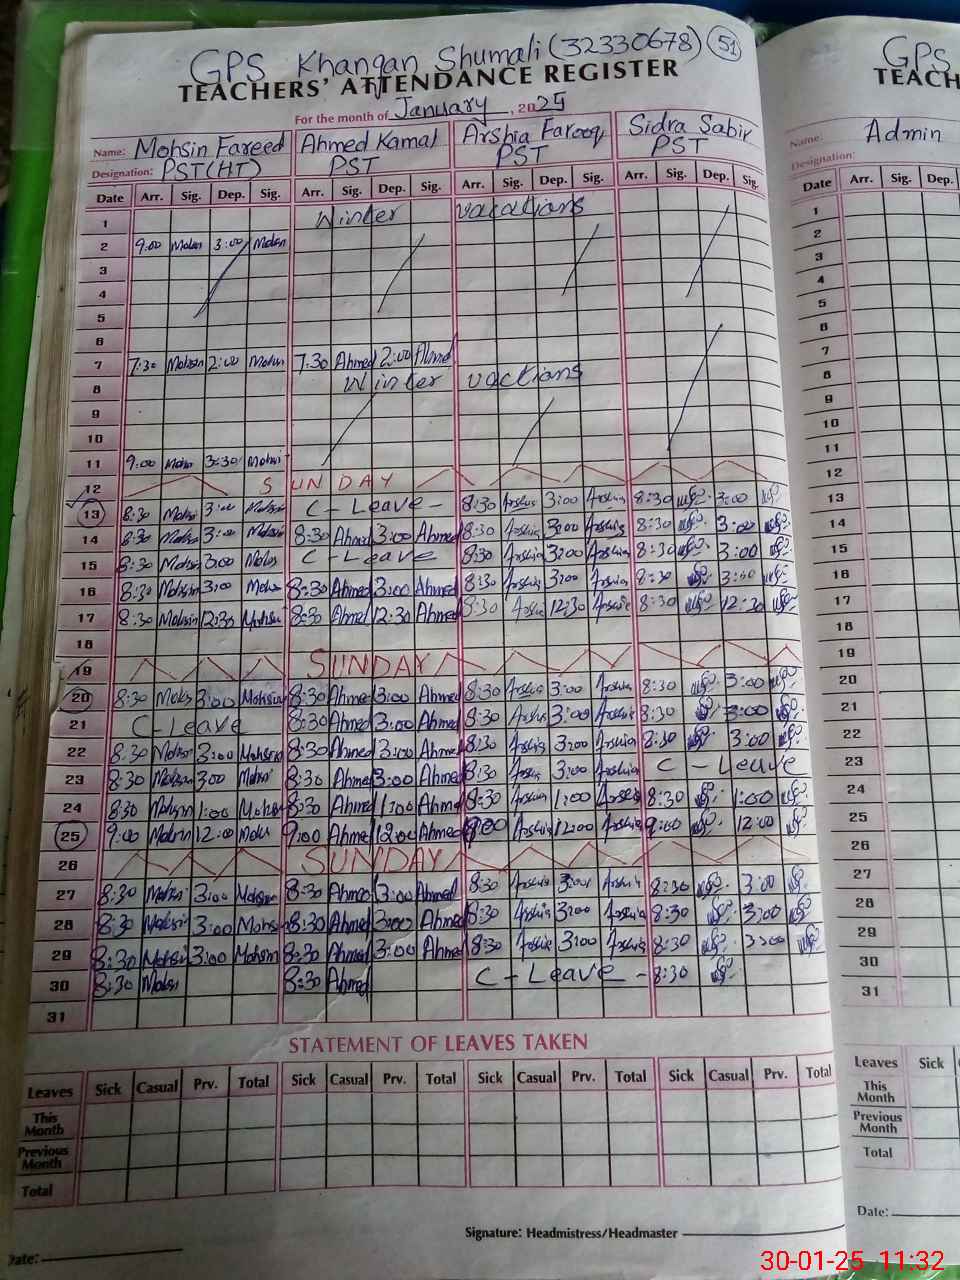 GPS Khangan Shumali (32330678) 51
TEACHERS' ATTENDANCE REGISTER
For the month of January, 2025
Name: Mohsin Fareed Ahmed Kamal Arshia Farooq Sidra Sabir
Designation: PST(HT) PST PST PST
Date Arr. Sig. Dep. Sig. Arr. Sig. Dep. Sig. Arr. Sig. Dep. Sig. Arr. Sig. Dep. Sig.
1 Winter vacations
2 9:00 Mohsin 3:00 Mohsin
3
4
5
6
7 7:30 Mohsin 2:00 Mohsin 7:30 Ahmed 2:00 Ahmed
8 Winter vactians
9
10
11 9:00 Mohsin 3:30 Mohsin
12 SUNDAY
13 8:30 Mohsin 3:00 Mohsin C-Leave- 8:30 Arshia 3:00 Arshia 8:30 3:00
14 8:30 Mohsin 3:00 Mohsin 8:30 Ahmed 3:00 Ahmed 8:30 Arshia 3:00 Arshia 8:30 3:00
15 8:30 Mohsin 3:00 Mohsin C-Leave 8:30 Arshia 3:00 Arshia 8:30 3:00
16 8:30 Mohsin 3:00 Mohsin 8:30 Ahmed 3:00 Ahmed 8:30 Arshia 3:00 Arshia 8:30 3:00
17 8:30 Mohsin 12:30 Mohsin 8:30 Ahmed 12:30 Ahmed 8:30 Arshia 12:30 Arshia 8:30 12:30
18
19 SUNDAY
20 8:30 Mohsin 3:00 Mohsin 8:30 Ahmed 3:00 Ahmed 8:30 Arshia 3:00 Arshia 8:30 3:00
21 C-Leave 8:30 Ahmed 3:00 Ahmed 8:30 Arshia 3:00 Arshia 8:30 3:00
22 8:30 Mohsin 3:00 Mohsin 8:30 Ahmed 3:00 Ahmed 8:30 Arshia 3:00 Arshia 8:30 3:00
23 8:30 Mohsin 3:00 Mohsin 8:30 Ahmed 3:00 Ahmed 8:30 Arshia 3:00 Arshia C-Leave
24 8:30 Mohsin 1:00 Mohsin 8:30 Ahmed 1:00 Ahmed 8:30 Arshia 1:00 Arshia 8:30 1:00
25 9:00 Mohsin 12:00 Mohsin 9:00 Ahmed 12:00 Ahmed 9:00 Arshia 12:00 Arshia 9:00 12:00
26 SUNDAY
27 8:30 Mohsin 3:00 Mohsin 8:30 Ahmed 3:00 Ahmed 8:30 Arshia 3:00 Arshia 8:30 3:00
28 8:30 Mohsin 3:00 Mohsin 8:30 Ahmed 3:00 Ahmed 8:30 Arshia 3:00 Arshia 8:30 3:00
29 8:30 Mohsin 3:00 Mohsin 8:30 Ahmed 3:00 Ahmed 8:30 Arshia 3:00 Arshia 8:30 3:00
30 8:30 Mohsin 8:30 Ahmed C-Leave- 8:30
31
STATEMENT OF LEAVES TAKEN
Leaves Sick Casual Prv. Total Sick Casual Prv. Total Sick Casual Prv. Total Sick Casual Prv. Total
This Month
Previous Month
Total
Signature: Headmistress/Headmaster
Date:
GPS
TEACH
Name: Admin
Designation:
Date Arr. Sig. Dep.
1
2
3
4
5
6
7
8
9
10
11
12
13
14
15
16
17
18
19
20
21
22
23
24
25
26
27
28
29
30
31
Leaves Sick
This Month
Previous Month
Total
Date:
30-01-25 11:32